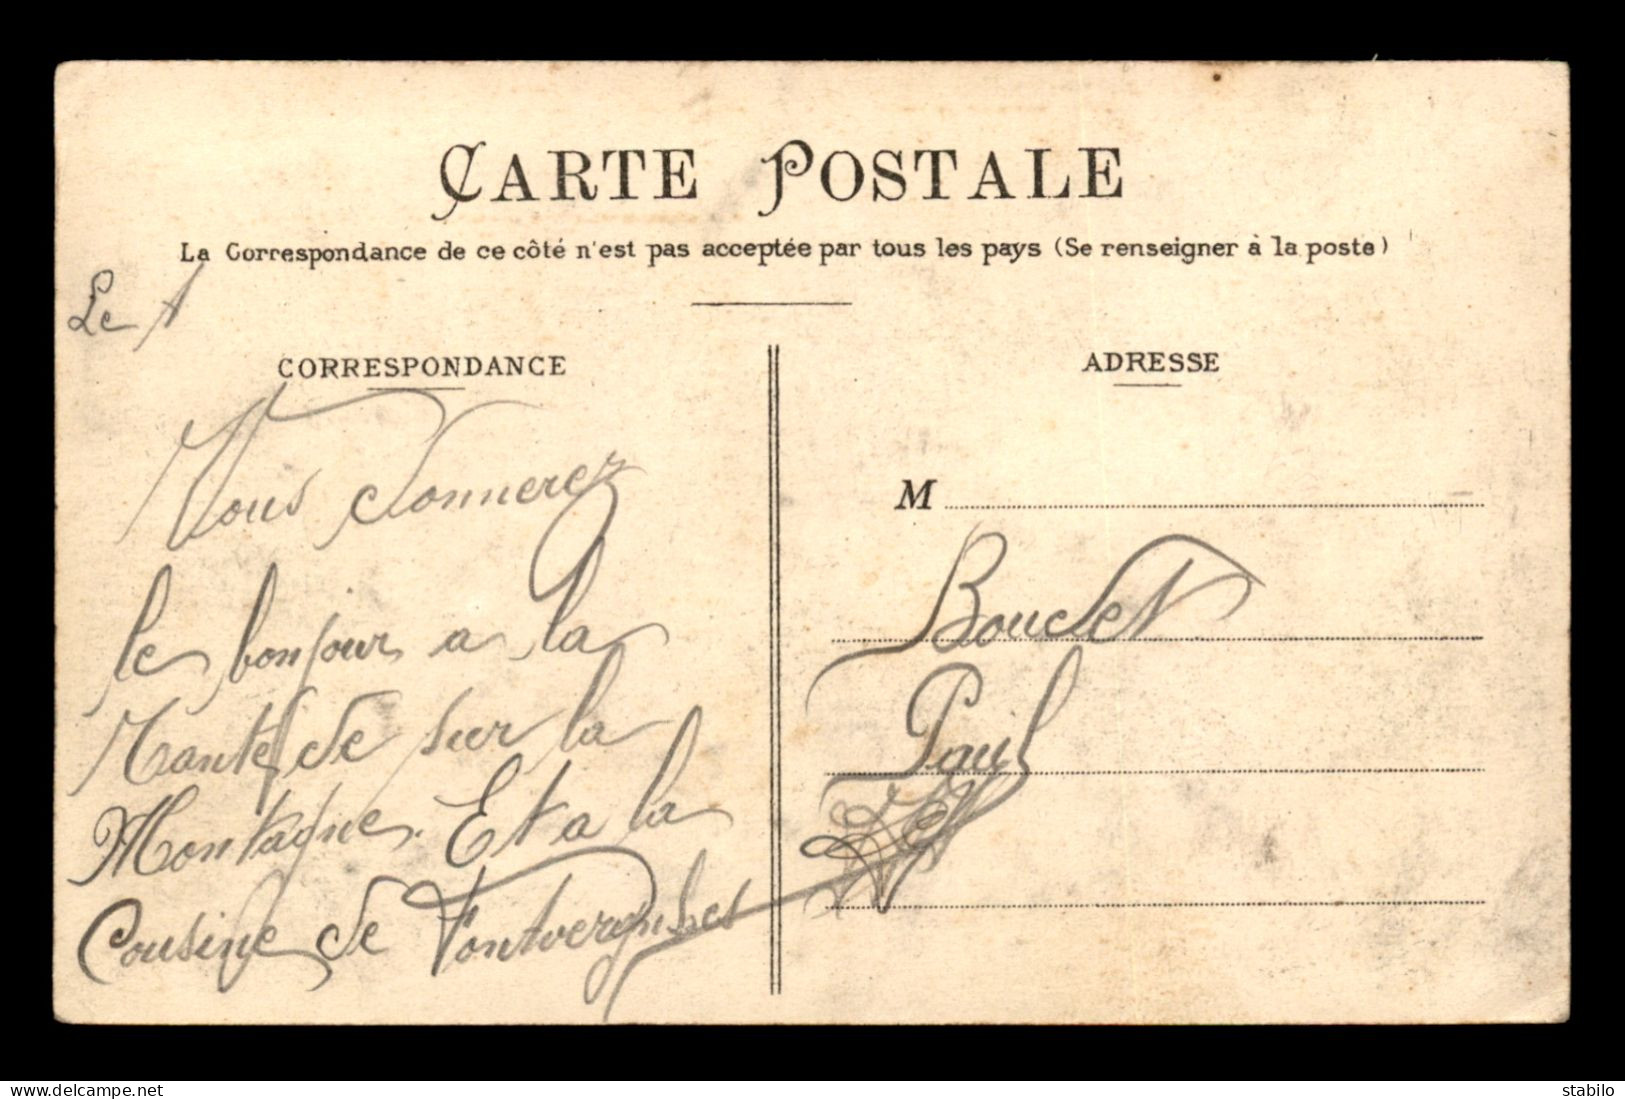 CARTE POSTALE
La Correspondance de ce côté n'est pas acceptée par tous les pays (Se renseigner à la poste)
Le 1
CORRESPONDANCE
Vous donnerez
le bonjour a la
de sur la
Montagne. Et a la
Cousine de
ADRESSE
M
Boudet
Paul
delcampe.net
stabilo